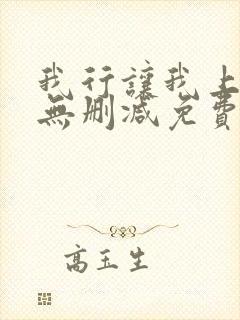 我行讓我上
無刪減免費
高玉生